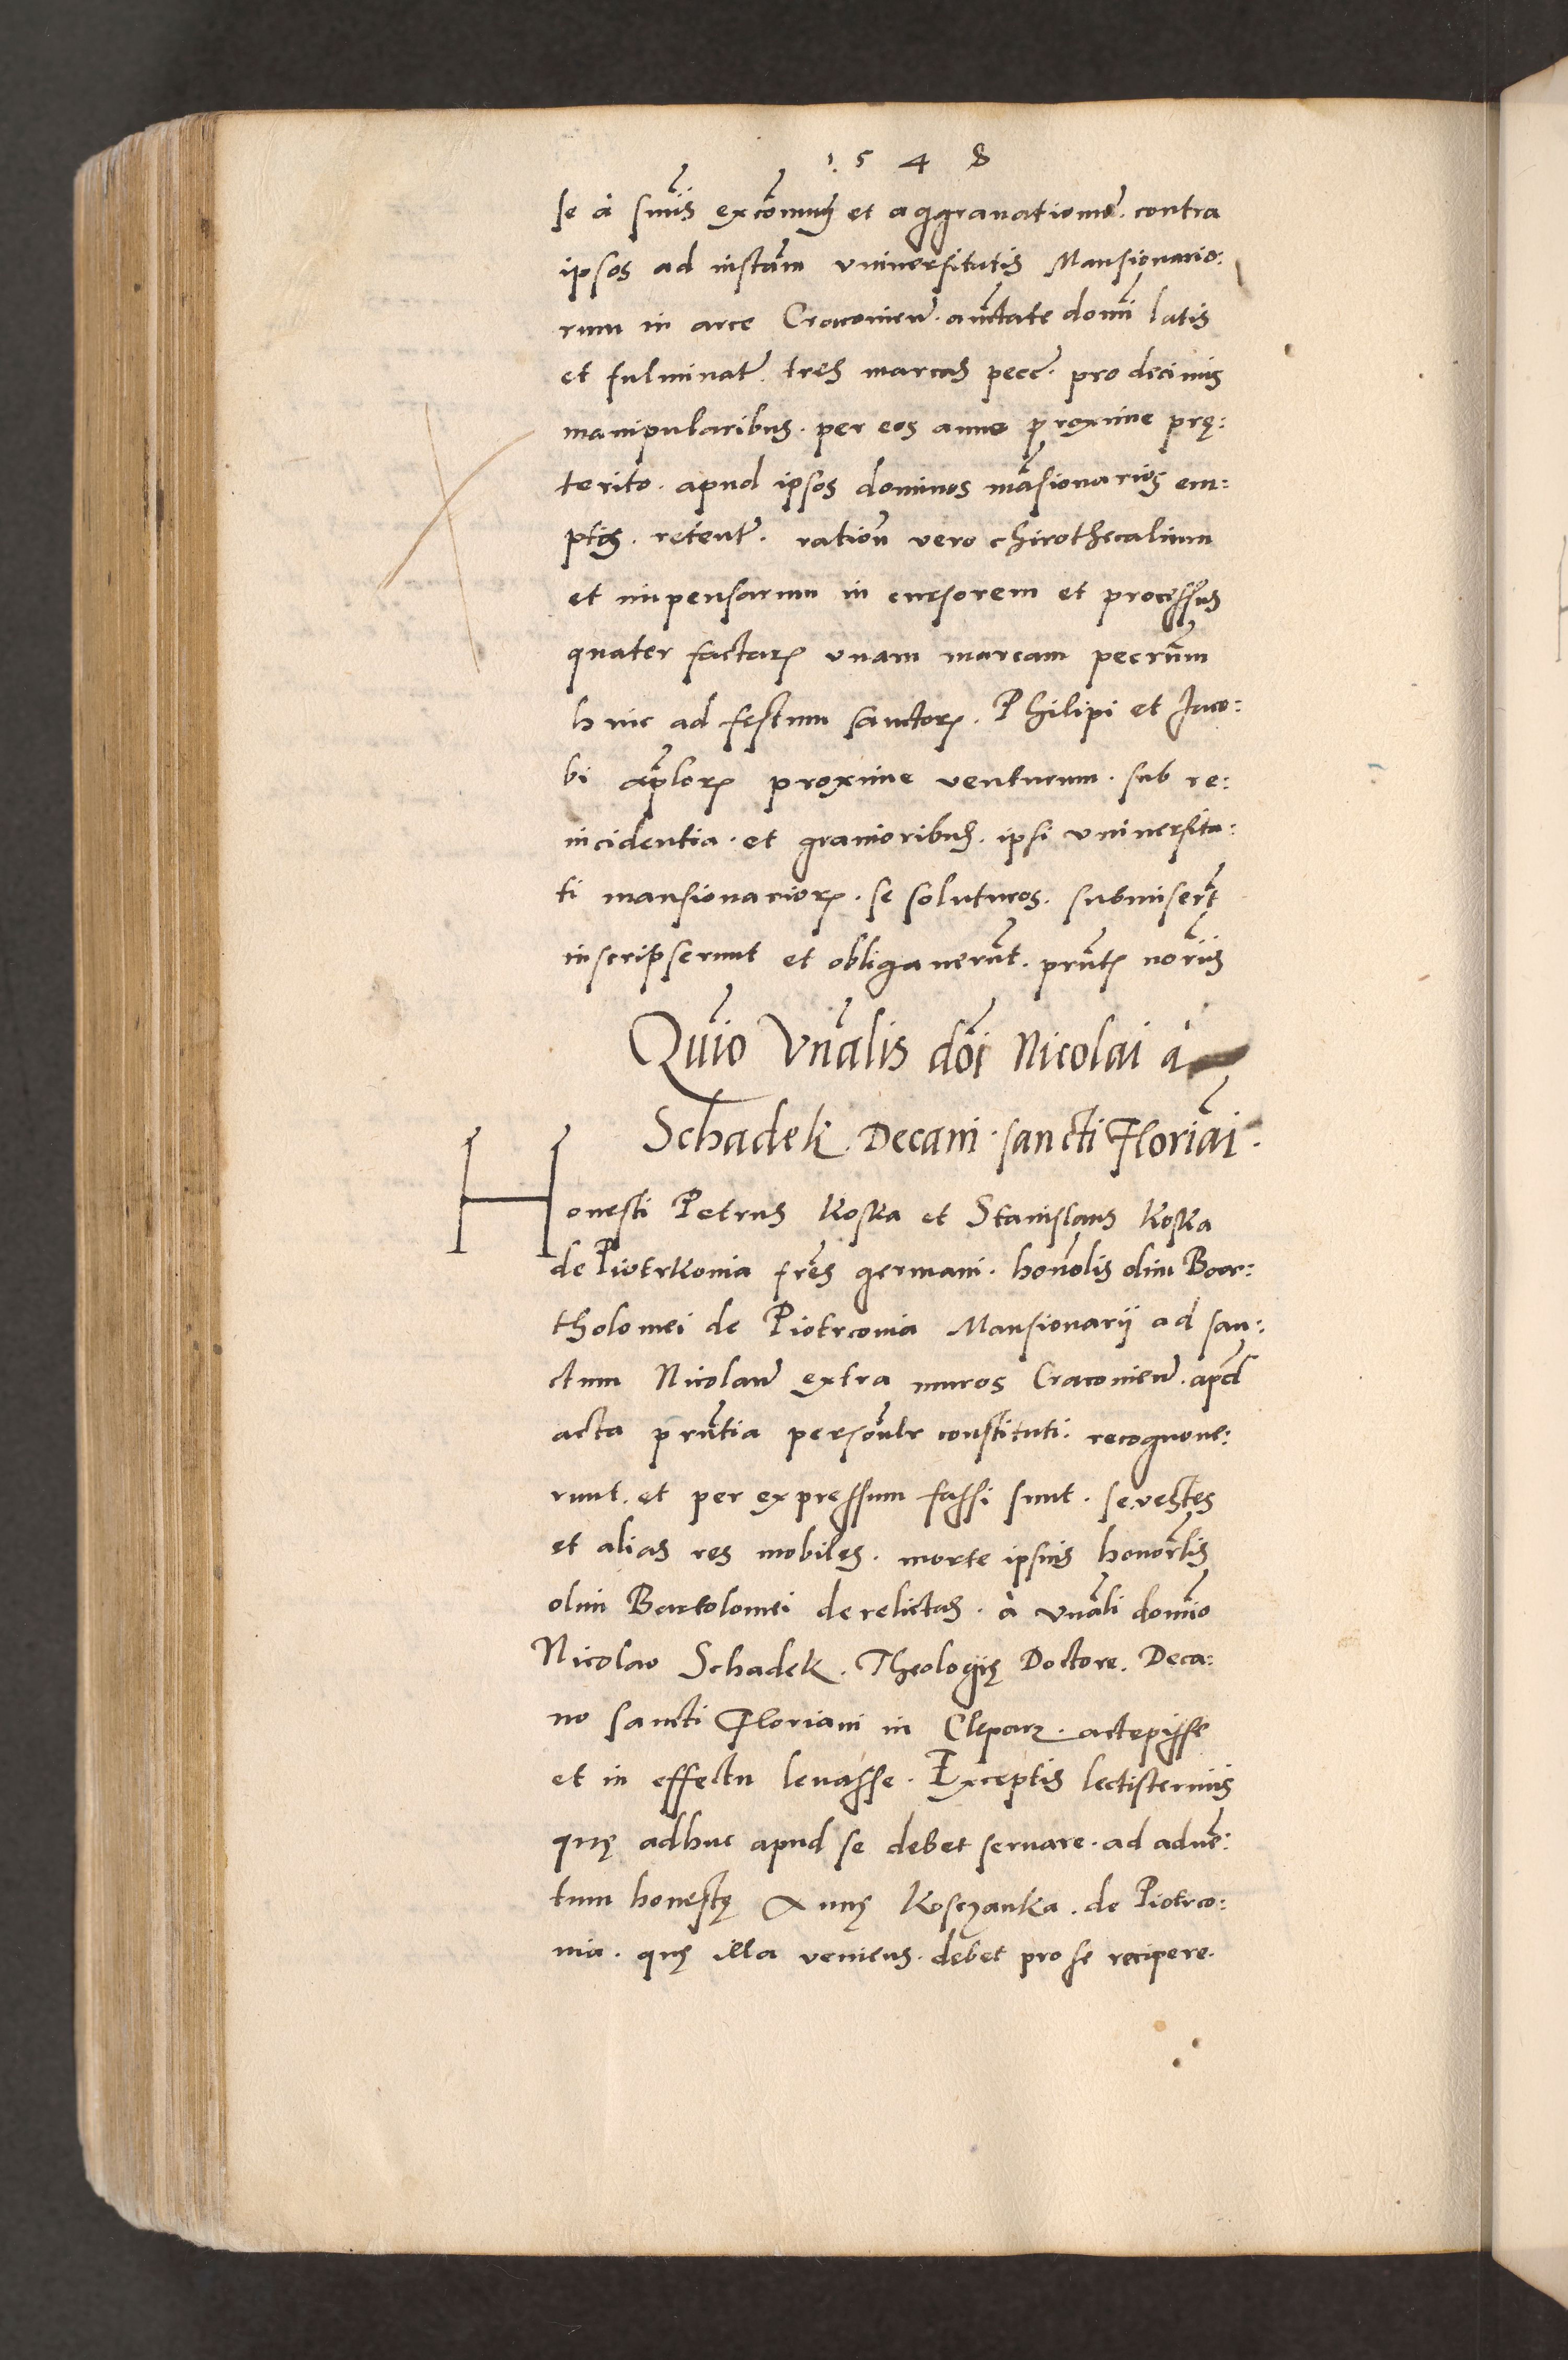 1548
se à sniis excōmuj et aggrauationū contra
ipsos ad instām vniuersitatis Mansionario:
rum in arce Cracouien̄. auctate domi latis
et fulminat̄. tres marcas pecc̄. pro decimis
manipularibus. per eos anno proxime prę:
terito. apud ipsos dominos māsionarios em:
ptis. retent̄. ration̄ vero chirothecalium
et impensarum in cursorem et processus
quater factarꝝ vnam marcam pecrūm
hinc ad festum sanctorꝝ. Philipi et Jaco:
bi aplorꝝ proxime venturum. sub re:
incidentia. et grauioribus. ipsi vniuersita:
ti mansionariorꝝ. se soluturos. submiserūt
inscripserunt et obligauerūt. prn̄tꝫ noriis
Quīo Vnālis dōi Nicolai à
Schadek Decani sancti Floriāi.
Honesti Petrus Koska et Stanislaus Koska
de Piotrkouia frēs germani. honōlis olim Bar:
tholomei de Piotrcouia Mansionarij ad san:
ctum Nicolaū extra muros Cracouien̄. apd̄
acta prn̄tia persōnlr constituti. recognoue:
runt. et per expressum fassi sunt. se vestes
et alias res mobiles. morte ipsius honorlis
olim Bartolomei derelictas. à vnāli domīo
Nicolao Schadek. Theologię Doctore. Deca:
no sancti Floriani in Cleparz. accepisse
et in effectu leuasse. Exceptis lectisterniis
quę adhuc apud se debet seruare. ad aduē:
tum honestę Annę Kosczanka. de Piotrco:
uia. quę illa veniens. debet pro se recipere.